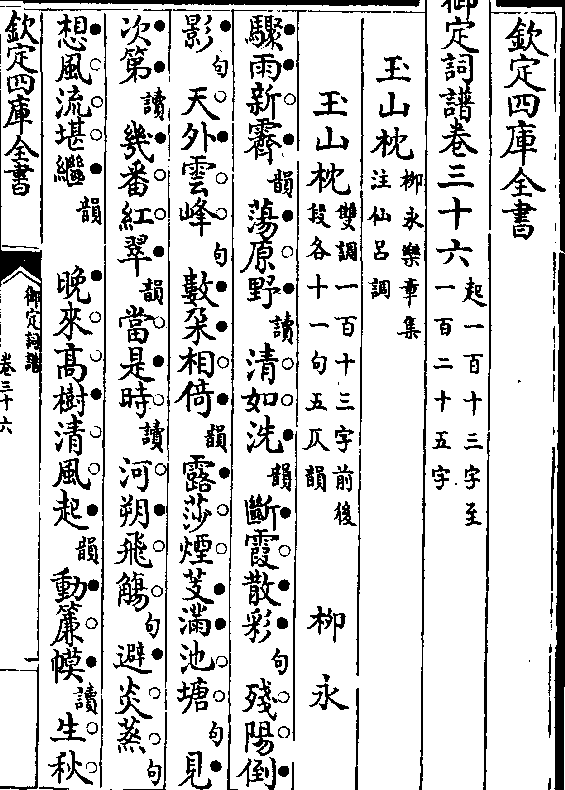 欽定四庫全書
御定詞譜卷三十六 起一百十三字至一百二十五字
玉山枕 柳永樂章集注仙呂調
玉山枕 雙調一百十三字前後段各十一句五仄韻 柳永
驟雨新霽韻蕩原野讀清如洗韻斷霞散彩句殘陽倒
影句天外雲峰句數朶相倚韻露莎煙芰滿池塘句見
次第讀幾番紅翠韻當是時讀河朔飛觴句避炎蒸句
想風流堪繼韻 晚來高樹清風起韻動簾幙讀生秋
欽定四庫全書
御定詞譜
卷三十六
一